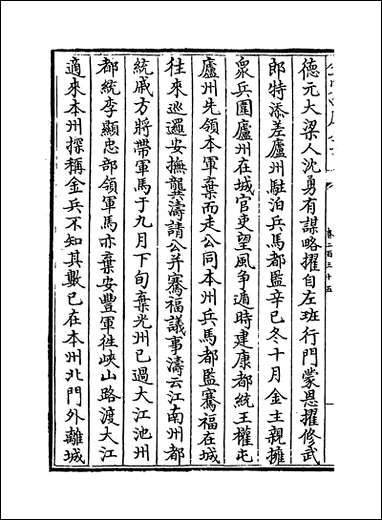 德元大梁人沈勇有謀略擢自左班行門蒙恩擢修武
郎特添差廬州駐泊兵馬都監辛巳冬十月金主親擁
衆兵圍廬州在城官吏望風爭遁時建康都統王權屯
廬州先領本軍棄而走公同本州兵馬都監騫福在城
往來巡邏安撫龔濤請公并騫福議事濤云江南州都
統戚方將帶軍馬于九月下旬棄光州已過大江池州
都統李顯忠部領軍馬亦棄安豐軍往峽山路渡大江
適來本州探稱金兵不知其數已在本州北門外離城
卷二百三十五